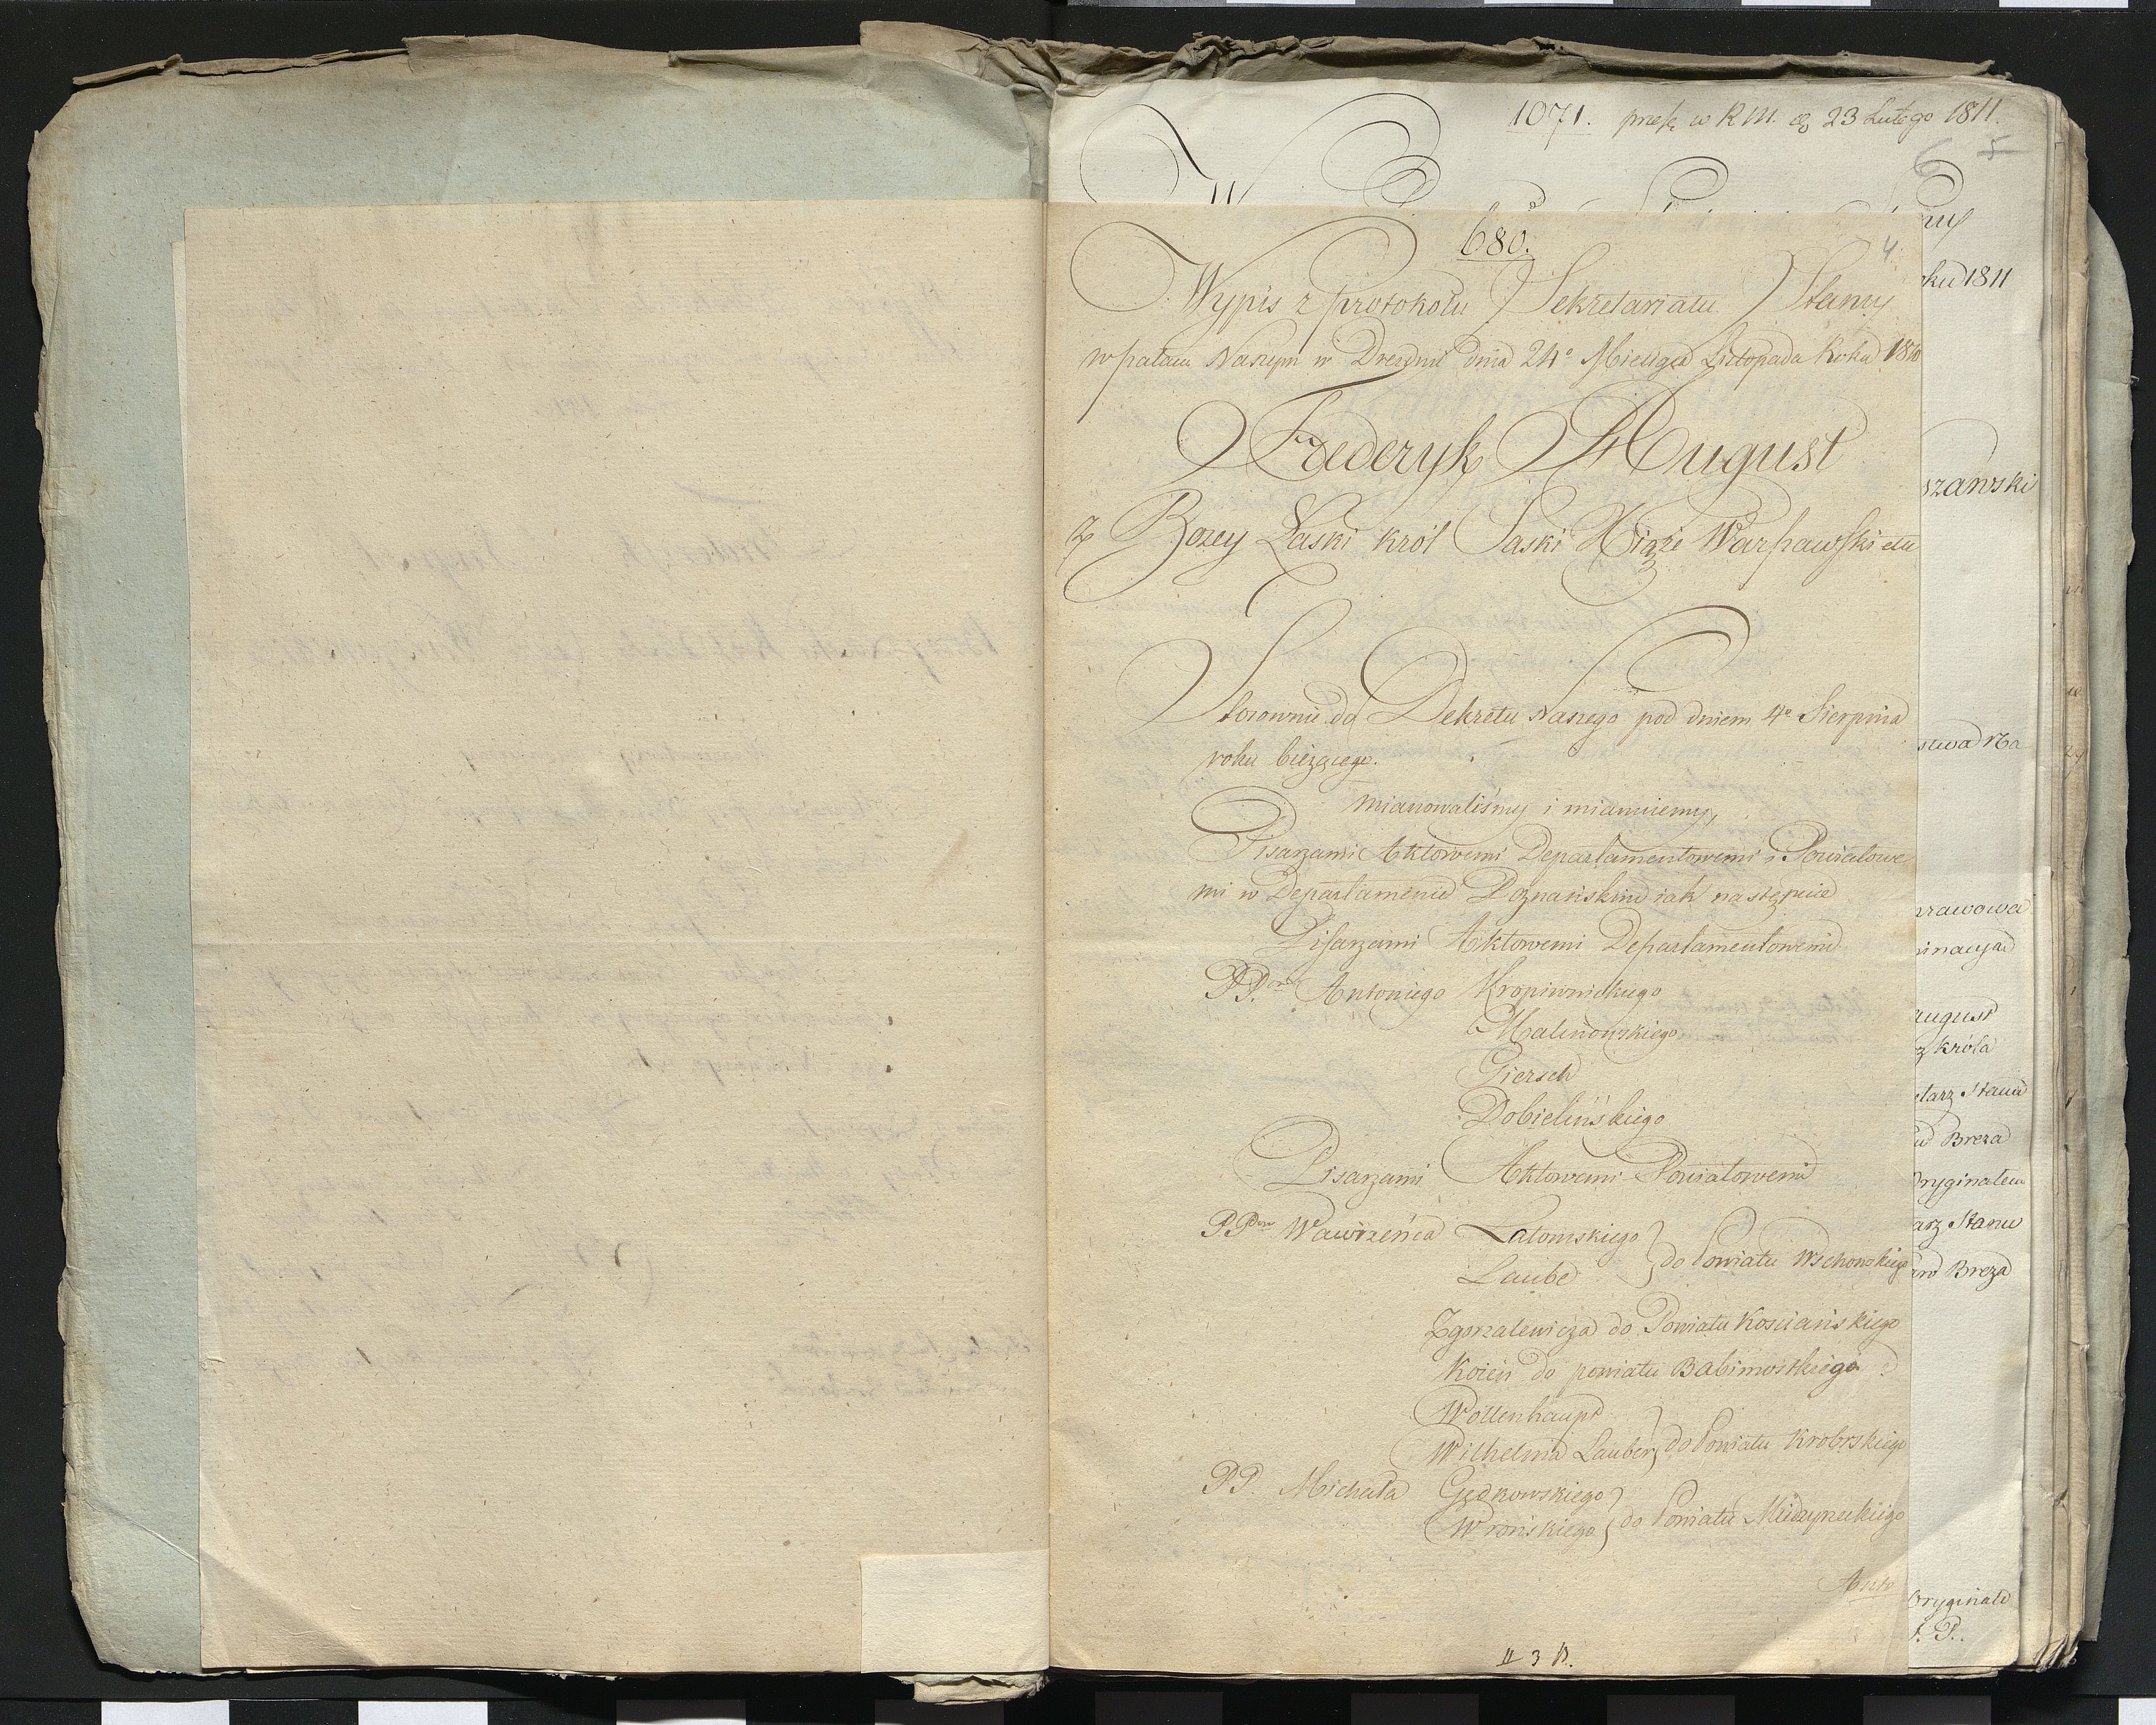 1071. w R M. 23 Lutego 1811.
6 5
680.
4.
Wypis z Protokołu Sekretariatu Stanu
w pałacu Naszym w Dreznie dnia 24º Miesiąca Listopada Roku 1810
Frederyk August
z Bozey Łaski Król Saski Xiąże Warszawski etc
Stosownie do Dekretu Naszego pod dniem 4º Sierpnia
roku bieżącego.
mianowaliśmy i mianuiemy,
Pisarzami Aktowemi Departamentowemi i Powiatowe
mi w Departamencie Poznańskim iak następuie
Pisarzami Aktowemi Departamentowemi
PP. Antoniego Kropiwnickiego
Malinowskiego
Giersch
Dobielińskiego
Pisarzami Aktowemi Powiatowemi
PP. Wawrzeńca Latomskiego
Laube
do Powiatu Wschowskiego
Zgorzalewicza do Powiatu Kościańskiego
do powiatu Babimostkiego
Wollenhaupt
Wilhelma Lauber do Powiatu Krobskiego
PP. Michała Gędkowskiego
Wrońskiego
do Powiatu Miedzyrzeckiego
3
ku 1811
szawski
august
z króla
tarz Stanu
u Breza
Oryginałem
arz Stanu
Breza
Oryginałe